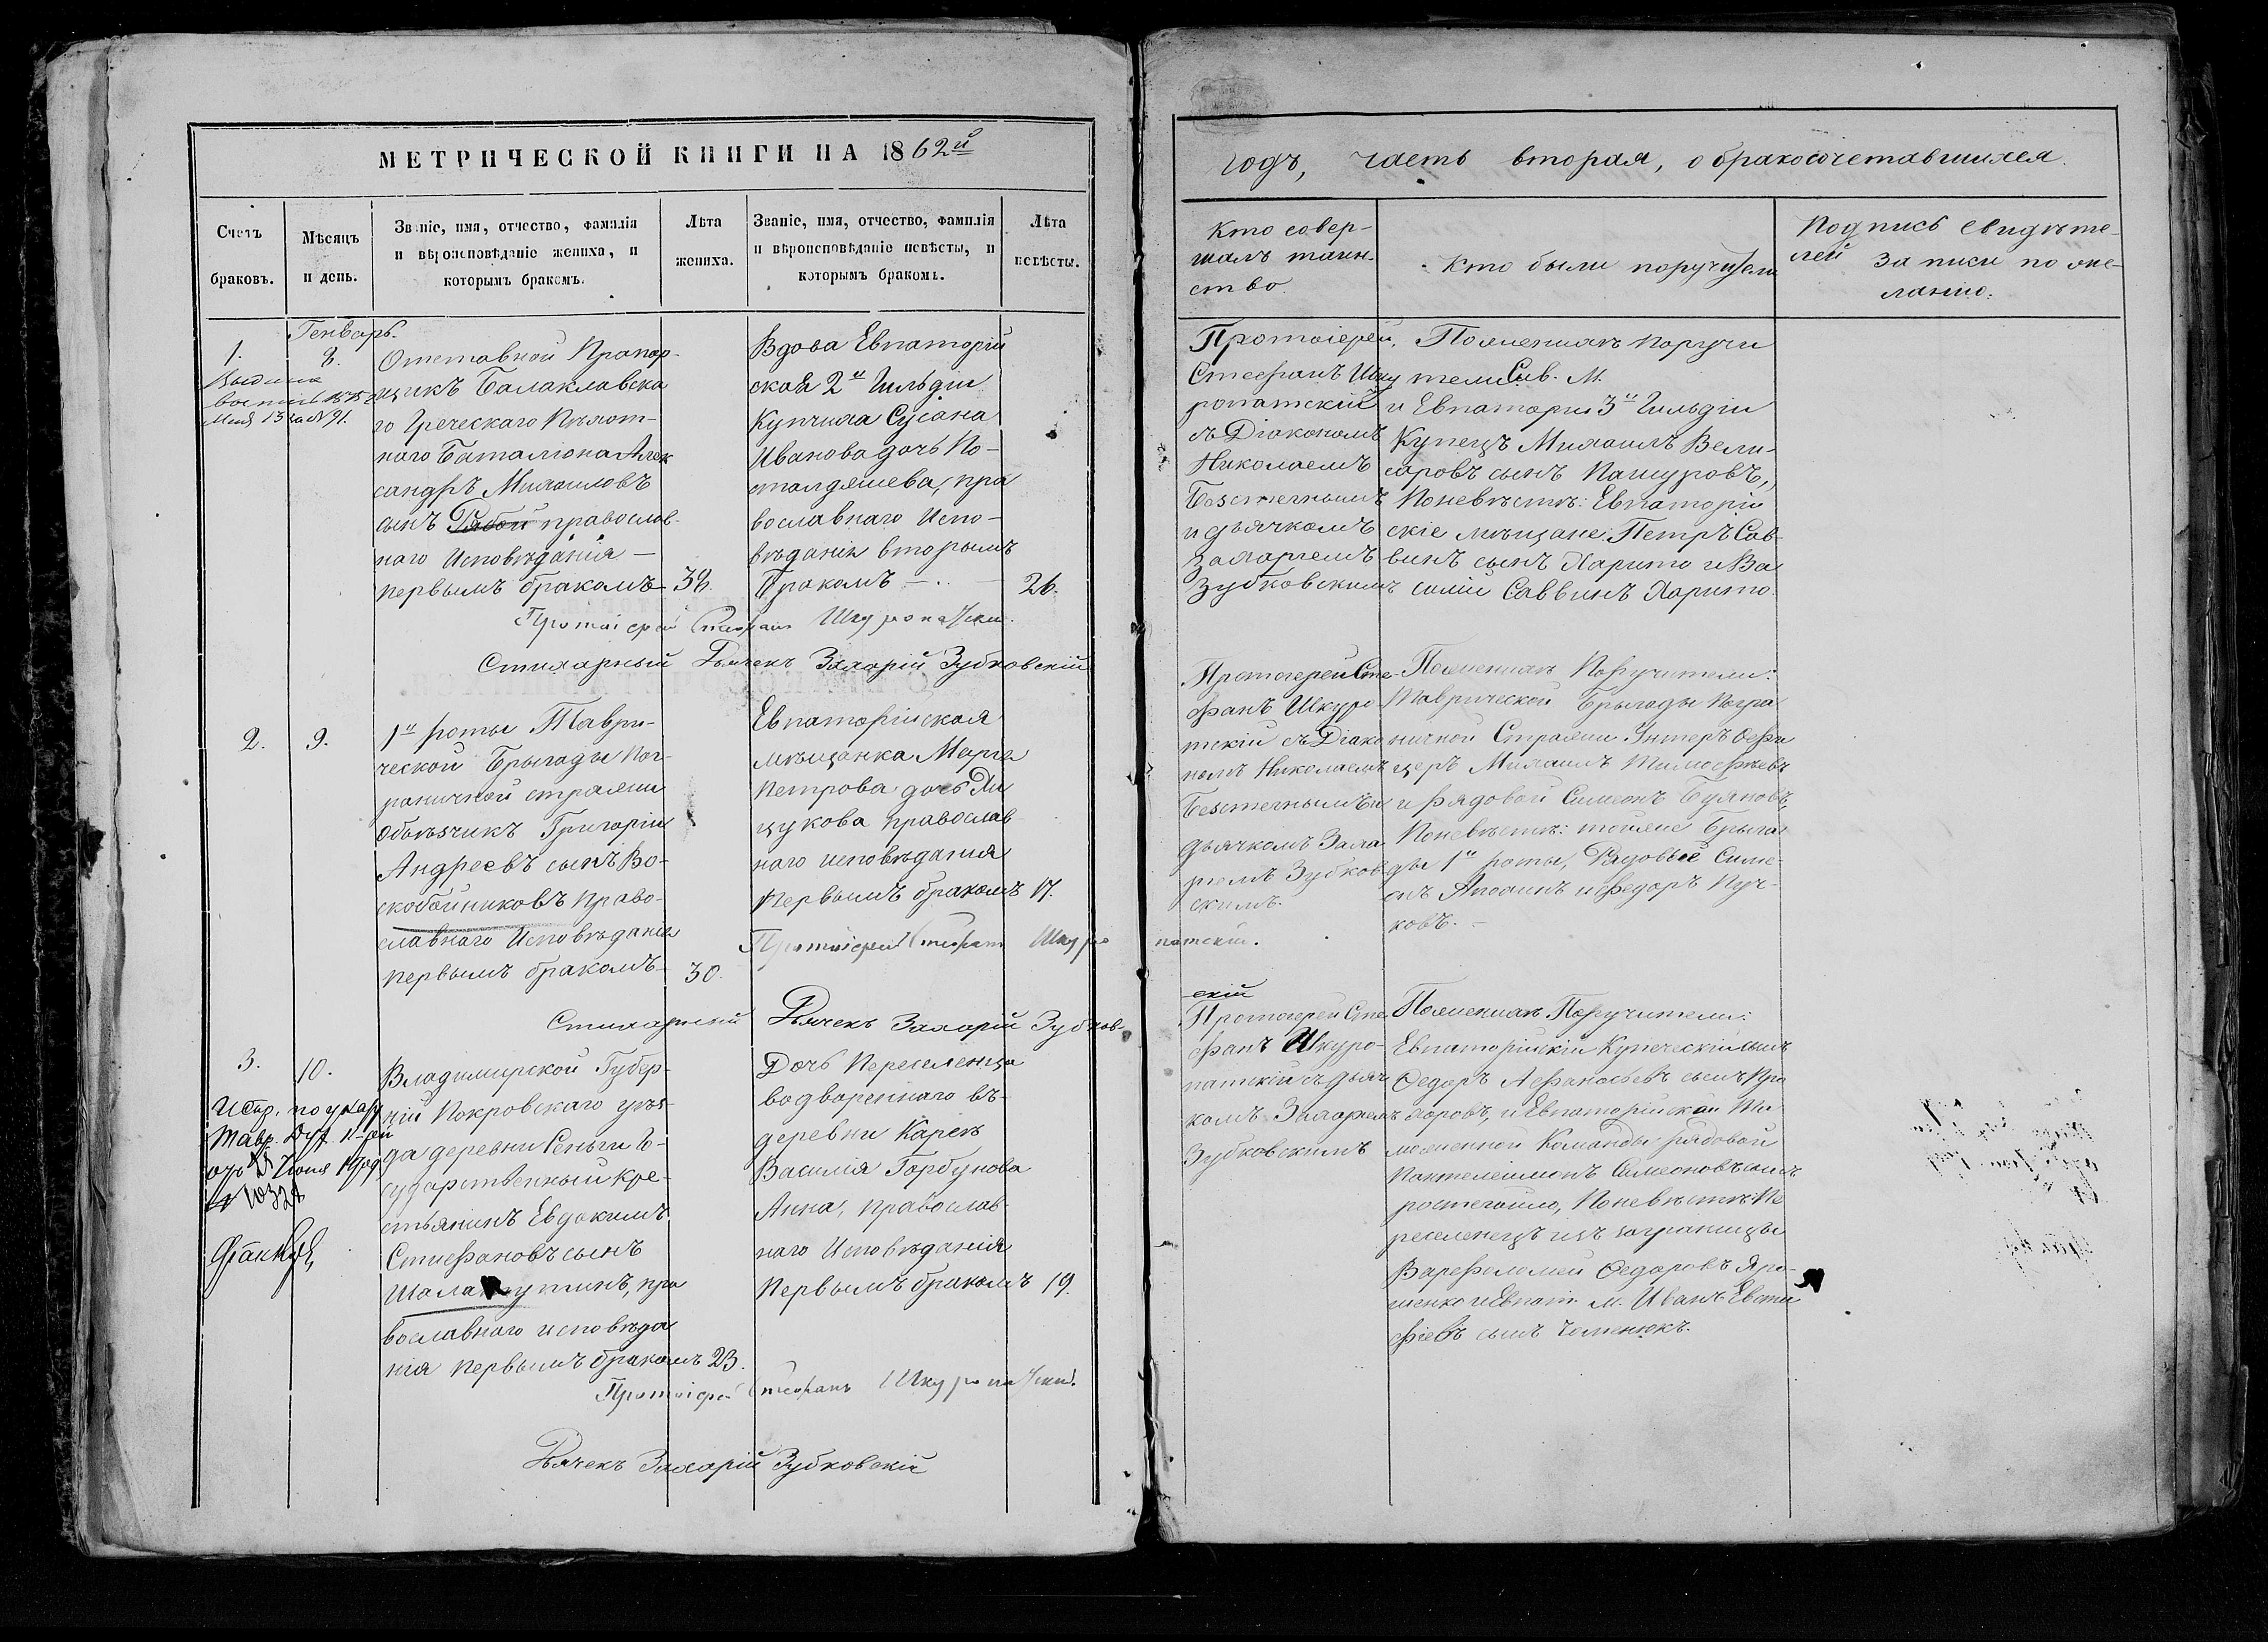 МЕТРИЧЕСКОЙ КНИГИ НА 1862й
годъ, часть вторая, о бракосочетавшихся.
Счетъ браковъ.
Мѣсяцъ и день.
Званіе, имя, отчество, фамилія
и вѣроисповѣданіе жениха, и
которымъ бракомъ.
Лѣта
жениха.
Званіе, имя, отчество, фамилія
и вѣроисповѣданіе невѣсты, и
которымъ бракомъ.
Лѣта
невѣсты.
Кто совер-
шалъ таин-
ство.
Кто были поручители
Подпись свидѣте-
лей записи по же-
ланію.
Генварь.
1.
8.
Отставной Прапор-
щикъ Балаклавска
го Греческаго Пѣхот-
наго Баталіона Алек
сандръ Михаиловъ
сынъ православ-
наго Исповѣданія —
первымъ бракомъ —
Вдова Евпаторій
ская 2й Гильдіи
Купчиха Сусана
Иванова дочь По-
пра
вославнаго Испо-
вѣданія вторымъ
Бракомъ —
26.
Протоіерей
Стефанъ Шку
ропатскій
съ Діакономъ
Николаемъ
Безстечнымъ
и дьячкомъ
Захаріемъ
Зубковскимъ
По женихѣ поручи
тели
и Евпаторіи 3й Гильдіи
Купецъ Михаилъ Вели-
саровъ сынъ Пашуровъ,
По невѣстѣ: Евпаторій
скіе мѣщане: Петръ Сав-
винъ сынъ Харито и Ва
силій Саввинъ Харито.
Протоіерей Стефанъ Шкуропатскій.
Стихарный Дьячекъ Захарій Зубковскій
2.
9.
1й роты Таври-
ческой Брыгады Пог-
раничной стражи
Объѣзчикъ Григорій
Андреевъ сынъ Во-
скобойниковъ Право-
славнаго Исповѣданія
первымъ бракомъ —
30.
Евпаторійская
мѣщанка Марія
Петрова дочь
православ
наго исповѣданія
Первымъ бракомъ
17.
Протоіерей Сте-
фанъ Шкуро
патскій съ Діако
номъ Николаемъ
Безстечнымъ и
дьячкомъ Заха
ріемъ Зубков-
скимъ.
По женихѣ Поручители:
Таврической Брыгады Погра
ничной Стражи Унтеръ Офи
церъ Михаилъ
и рядовой Симеонъ Буяновъ,
По невѣстѣ: тойже Брыга
ды 1й роты, Рядовые Симе-
онъ и Федоръ Пуч-
ковъ. —
Протоіерей Стефанъ Шкуро
патскій.
Стихарный Дьячекъ Захарій Зубков-
скій
3.
10.
Владимирской Губер-
ніи Покровскаго уѣз-
да деревни Сеньги Го-
сударственный кре-
стьянинъ Евдокимъ
Стефановъ сынъ
пра
вославнаго исповѣда
нія первымъ бракомъ
23.
Дочь Переселенца
водвореннаго въ
деревни Карекъ
Василія Горбунова
Анна, православ-
наго Исповѣданія
Первымъ бракомъ
19.
Протоіерей Сте
фанъ Шкуро-
патскій съ дьяч
комъ Захаріемъ
Зубковскимъ
По женихѣ Поручители:
Евпаторійскій Купеческій сынъ
Федоръ Афанасьевъ сынъ Про
хоровъ, и Евпаторійской Та
моженной Команды рядовой
Пантелеймонъ Симеоновъ сынъ
По невѣстѣ: Пе
реселенецъ изъ заграницы
Варфоломей Федоровъ Яро-
шенко и Евпат. м. Иванъ Евста
фіевъ сынъ
Протоіерей Стефанъ Шкуропатскій.
Дьячекъ Захарій Зубковскій